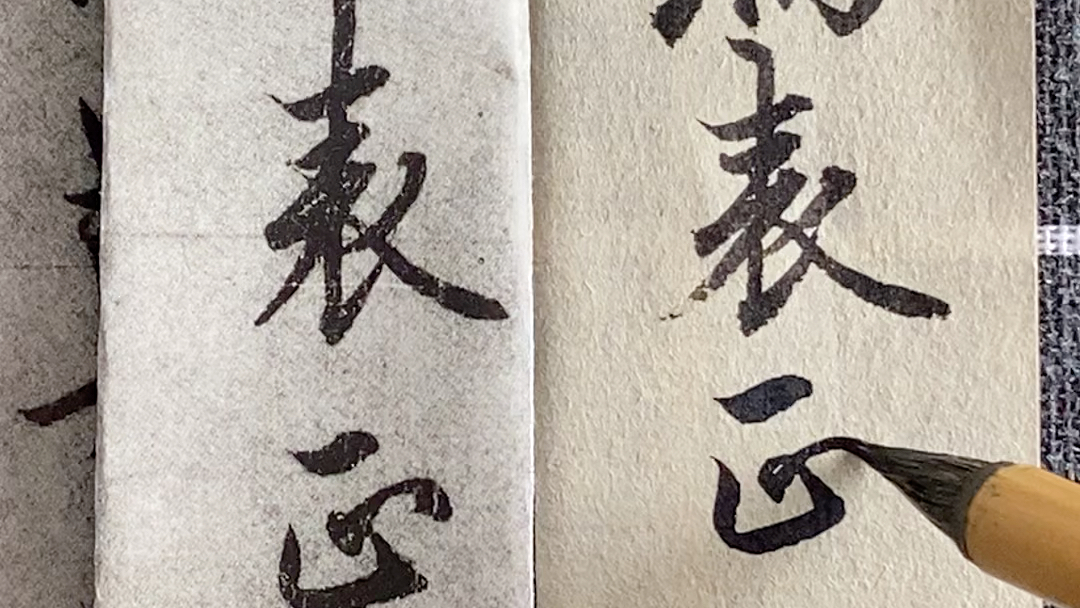 表正
表正